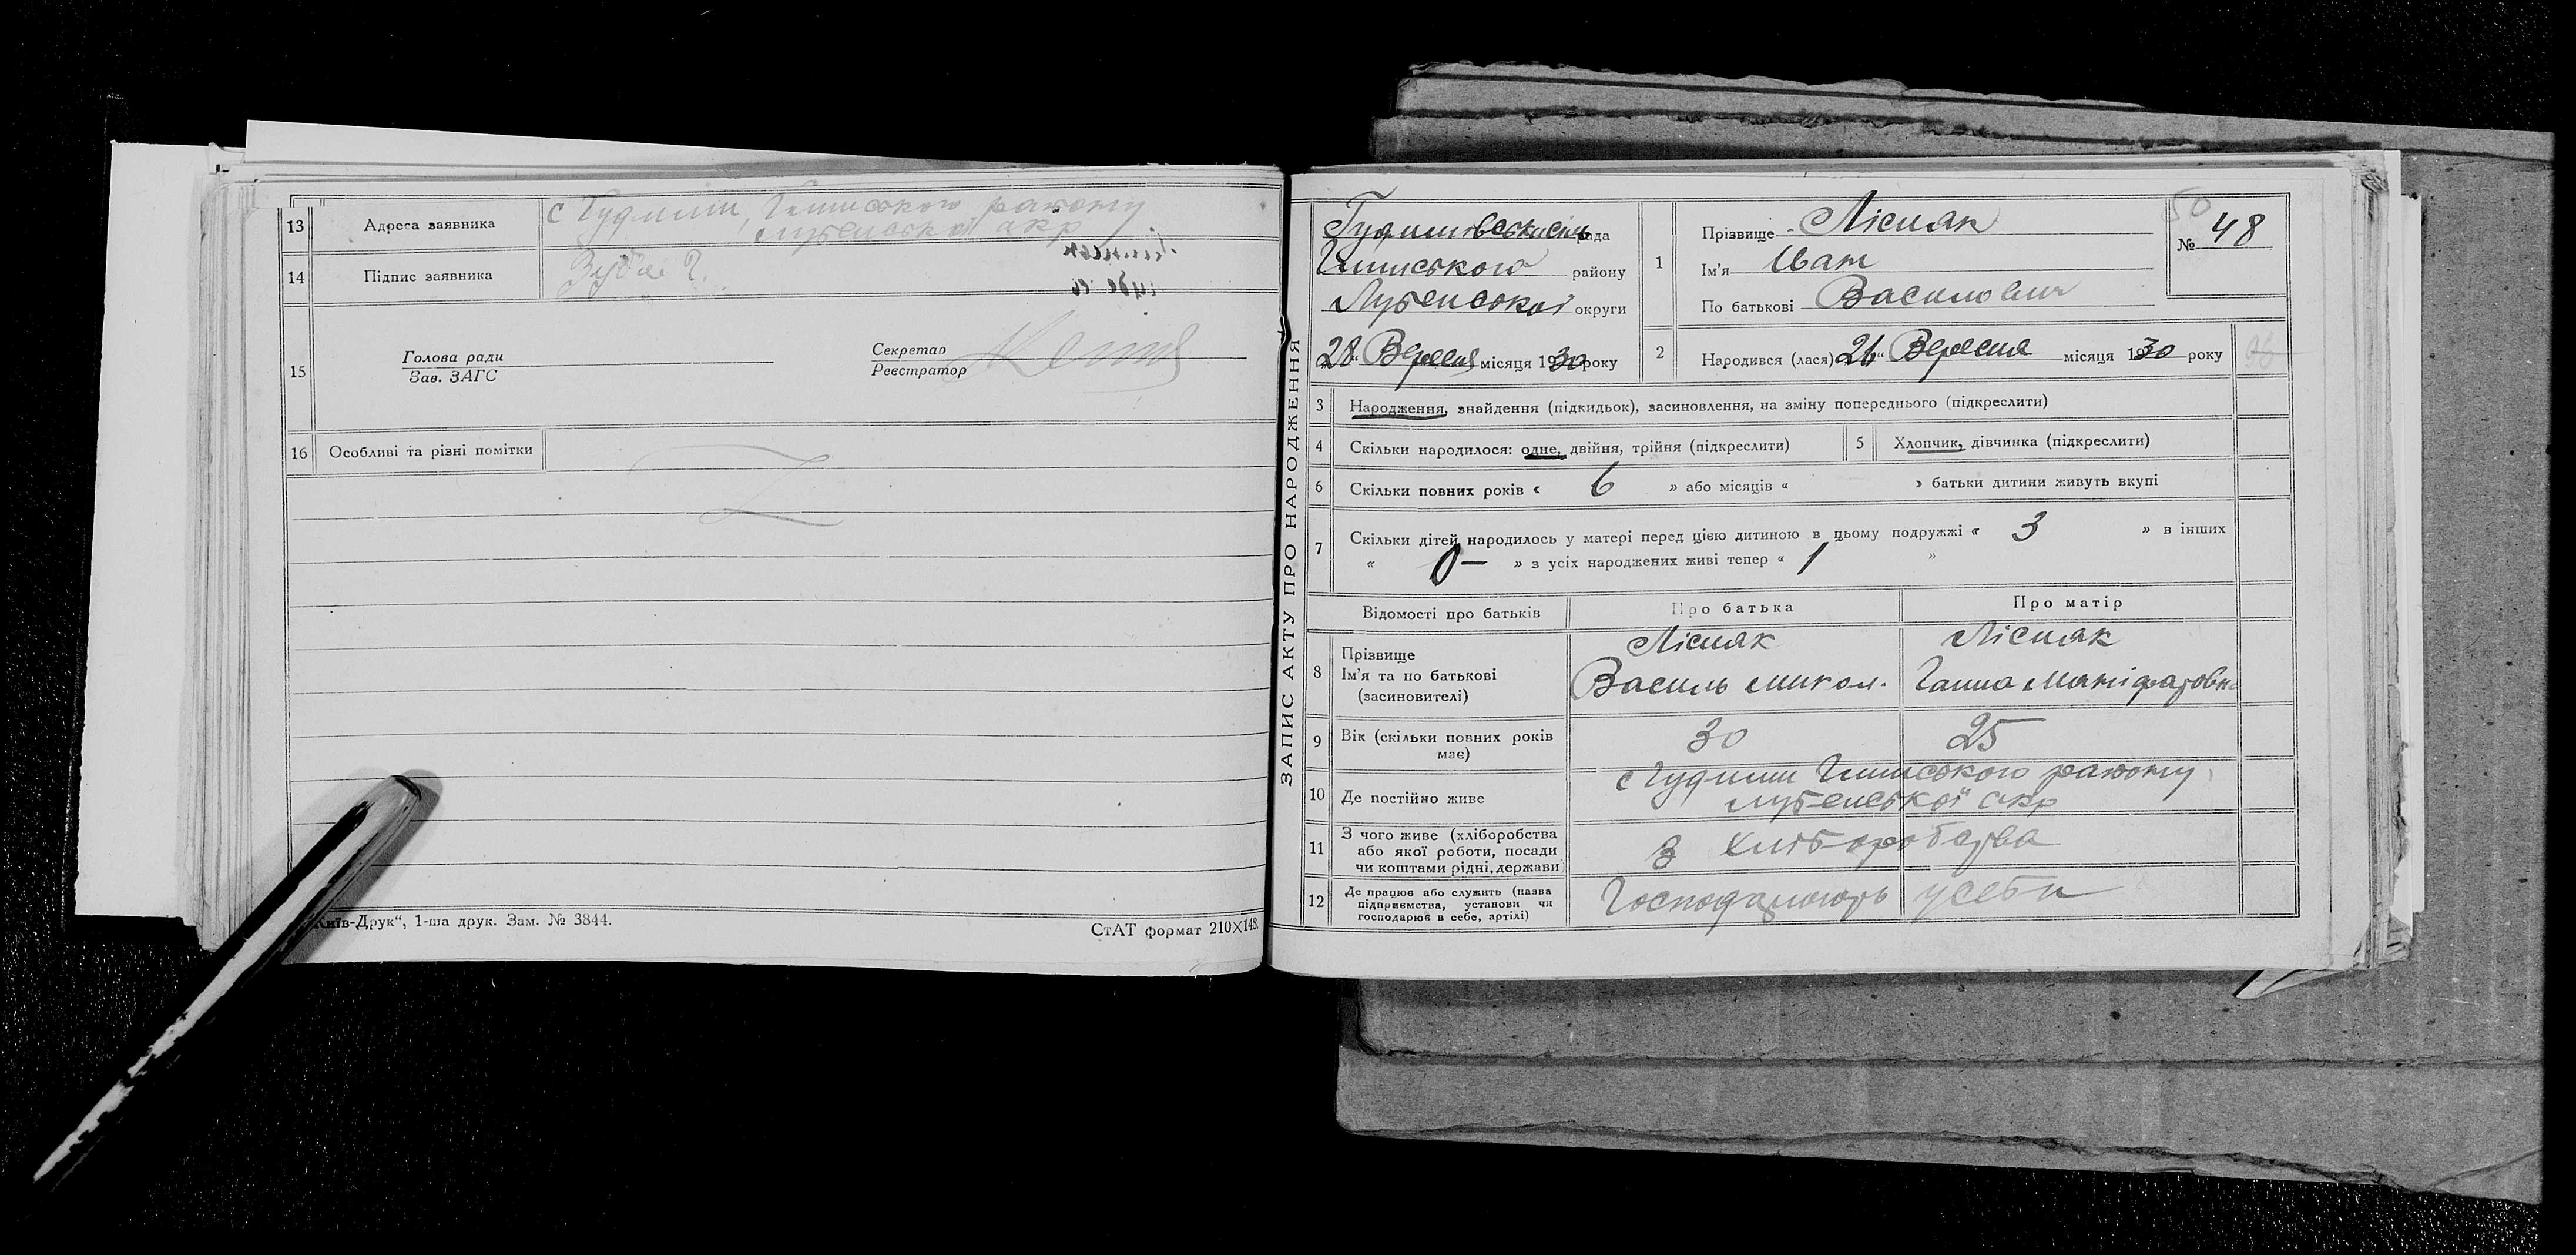 13 Адреса заявника с Гудими, району
Лубенської окр
14 Підпис заявника
15 Голова ради Секретар
Зав. ЗАГС Реєстратор
16 Особливі та різні помітки
Київ-Друк“, 1-ша друк. Зам. № 3844.
СтАТ формат 210×148.
ЗАПИС АКТУ ПРО НАРОДЖЕННЯ
рада
району
Лубенської округи
„28“ Вересня місяця 1930 року
50
№ 48
1 Прізвище Лісняк
Ім'я Іван
По батькові Василович
2 Народився (лася) „26“ Вересня місяця 1930 року
3 Народження, знайдення (підкидьок), засиновлення, на зміну попереднього (підкреслити)
4 Скільки народилося: одне, двійня, трійня (підкреслити)
5 Хлопчик, дівчинка (підкреслити)
6 Скільки повних років « 6 » або місяців « » батьки дитини живуть вкупі
7 Скільки дітей народилось у матері перед цією дитиною в цьому подружжі « 3 » в інших
« 0 — » з усіх народжених живі тепер « 1 »
Відомості про батьків Про батька Про матір
8 Прізвище Лісняк Лісняк
Ім'я та по батькові Василь Микол. Ганна
(засновителі)
9 Вік (скільки повних років має) 30 25
10 Де постійно живе с Гудими району
Лубенської окр
11 З чого живе (хліборобства
або якої роботи, посади
чи коштами рідні, держави) З хліборобства
12 Де працює або служить (назва
підприємства, установи чи
господарює в себе, артілі) Господарюють у себе